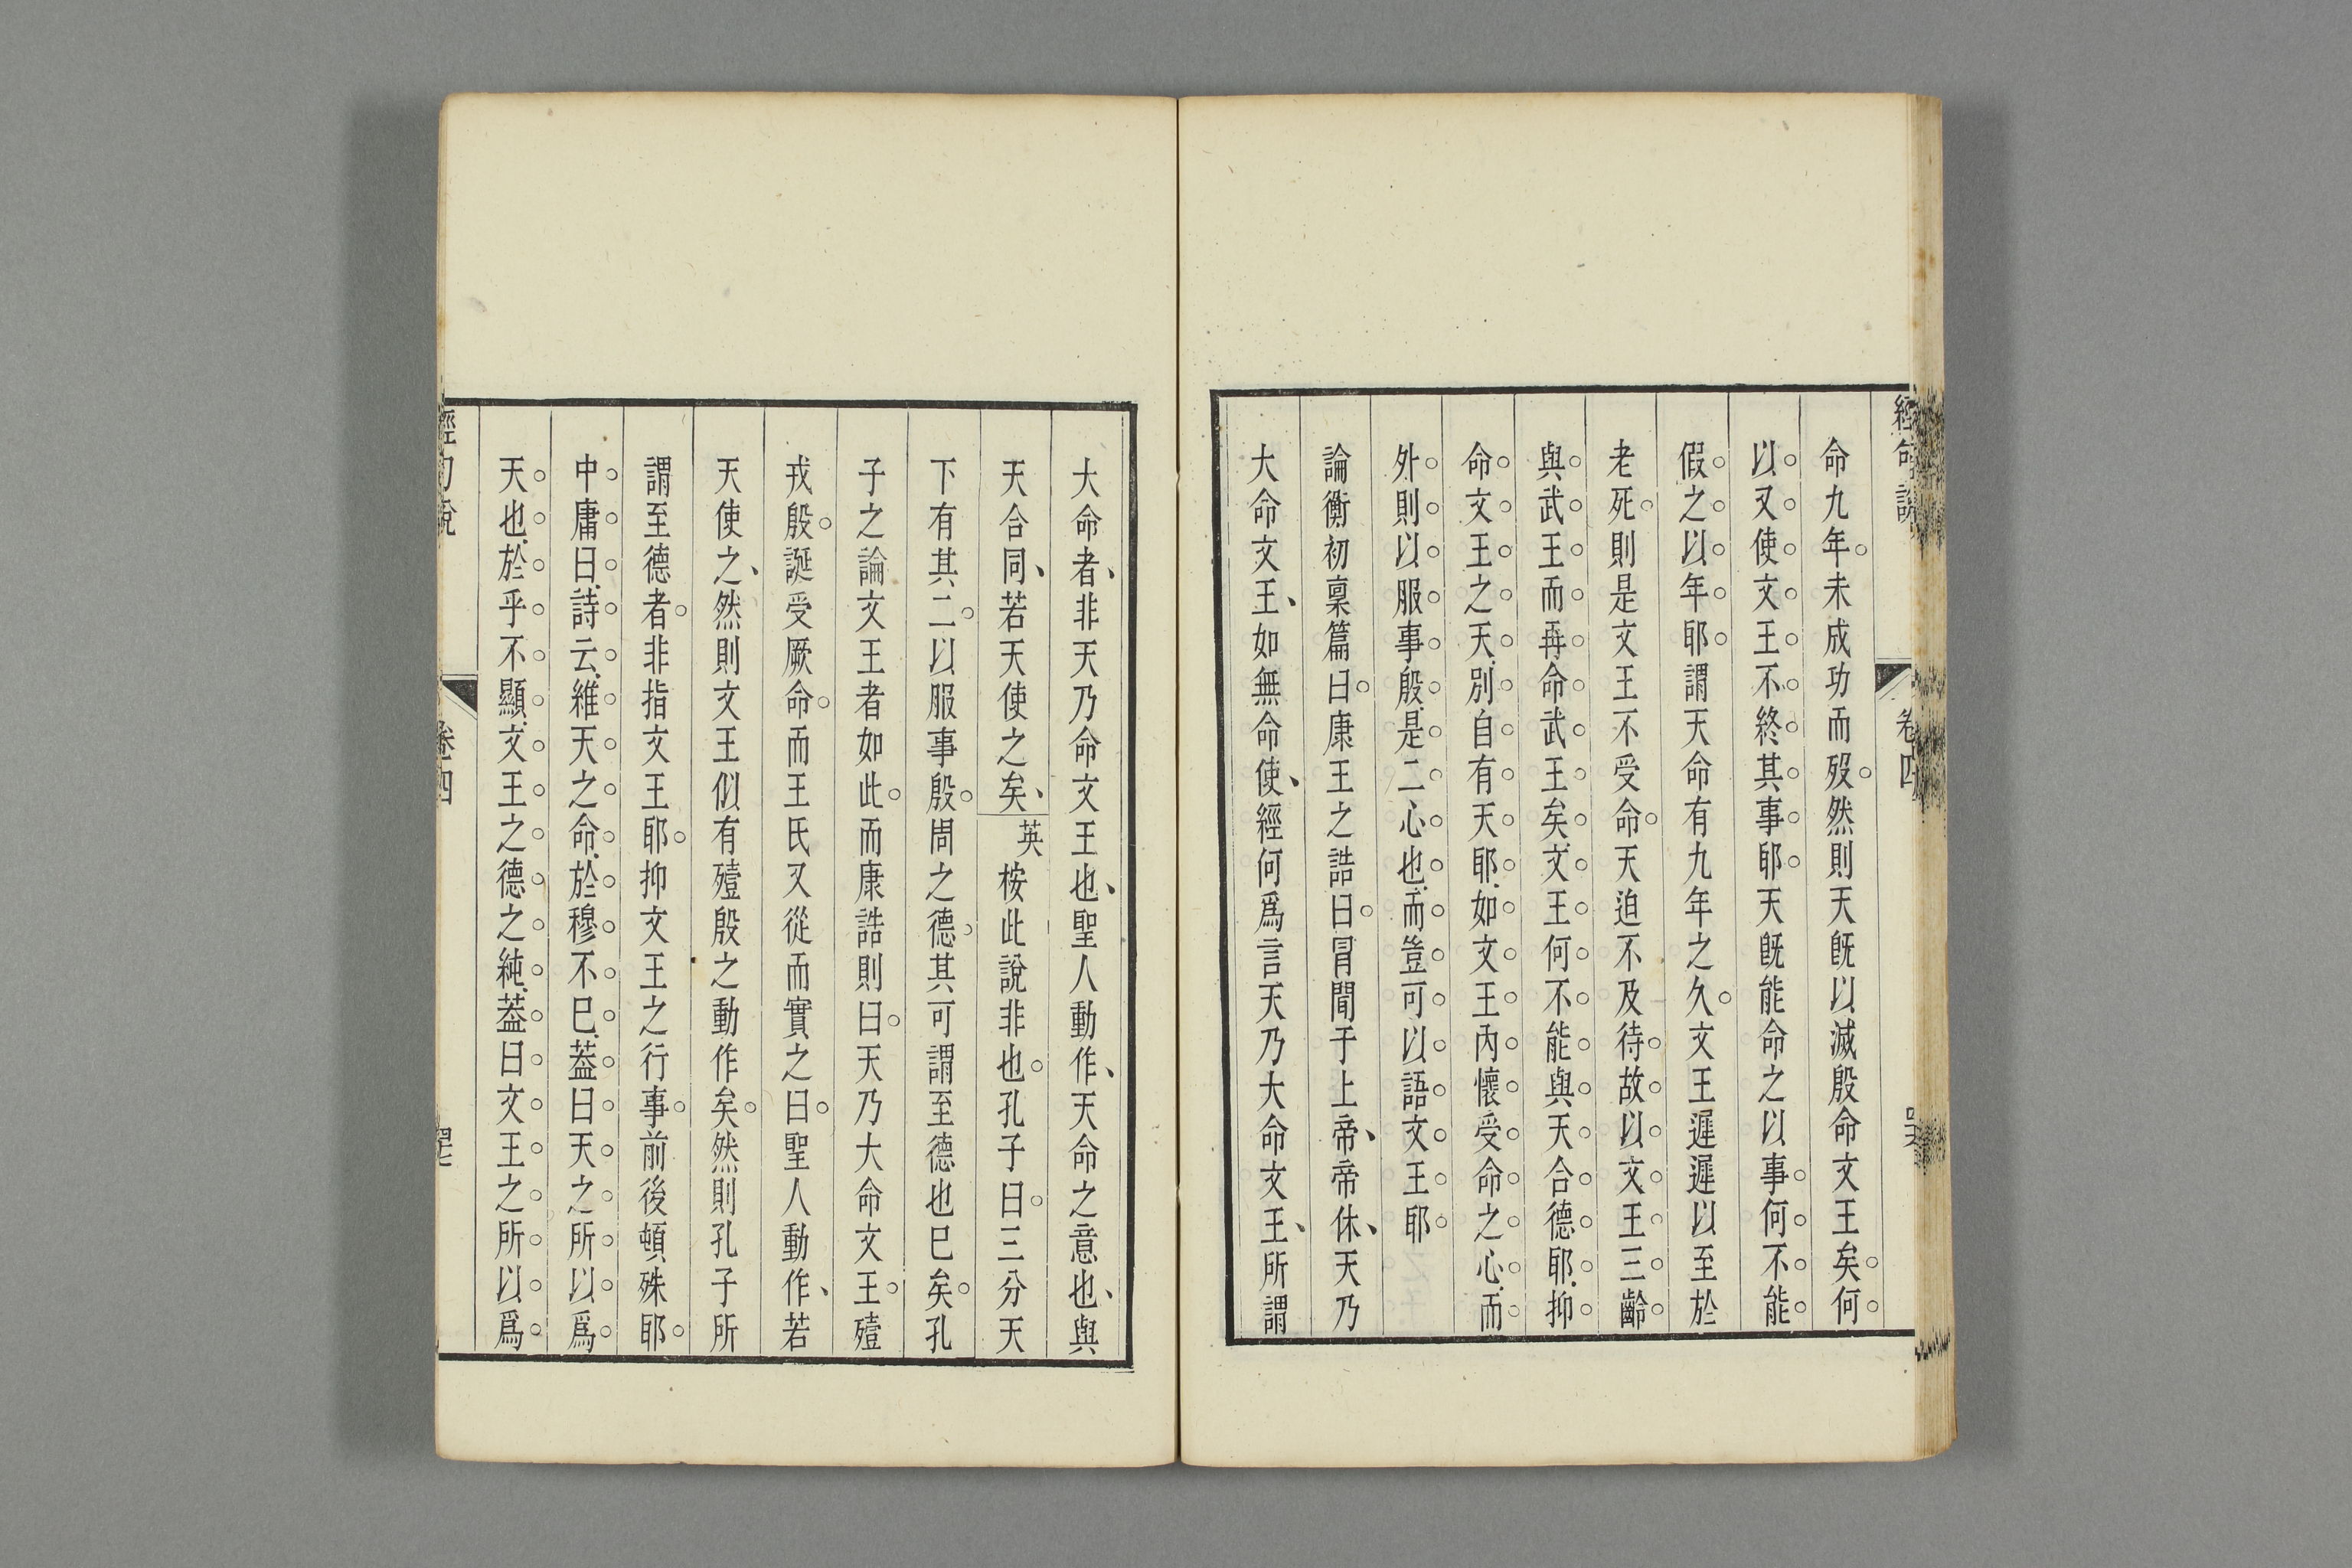 經句說 卷四
命九年未成功而歿然則天旣以滅殷命文王矣何
以又使文王不終其事耶天旣能命之以事何不能
假之以年耶謂天命有九年之久文王遲遲以至於
老死則是文王不受命天迫不及待故以文王三齡
與武王而再命武王矣文王何不能與天合德耶抑
命文王之天別自有天耶如文王內懷受命之心而
外則以服事殷是二心也而豈可以語文王耶
論衡初稟篇曰康王之誥曰冐聞于上帝帝休天乃
大命文王如無命使經何爲言天乃大命文王所謂
大命者非天乃命文王也聖人動作天命之意也與
天合同若天使之矣英桉此說非也孔子曰三分天
下有其二以服事殷周之德其可謂至德也巳矣孔
子之論文王者如此而康誥則曰天乃大命文王殪
戎殷誕受厥命而王氏又從而實之曰聖人動作若
天使之然則文王似有殪殷之動作矣然則孔子所
謂至德者非指文王耶抑文王之行事前後頓殊耶
中庸曰詩云維天之命於穆不巳葢曰天之所以爲
天也於乎不顯文王之德之純葢曰文王之所以爲
經句說 卷四